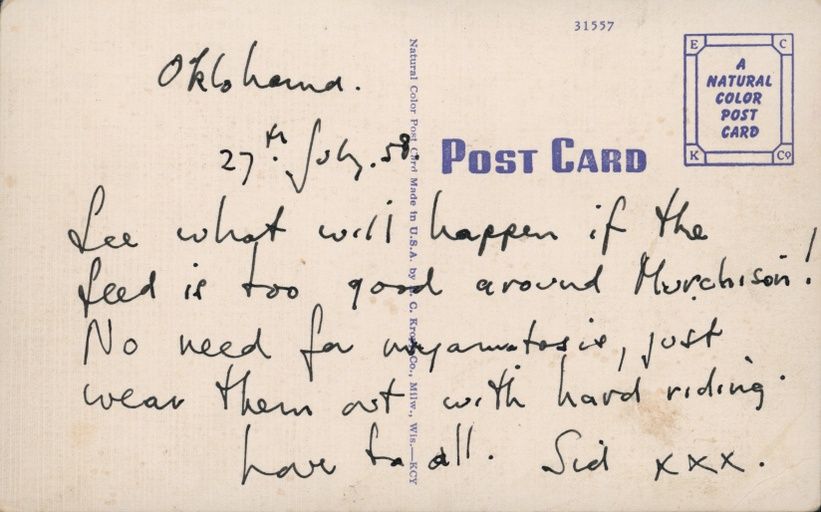 31557
E C
A
NATURAL
COLOR
POST
CARD
K Co
POST CARD
Natural Color Post Card Made in U.S.A. by E. C. Kropp Co., Milw., Wis.—KCY
Oklohama.
27th July. 58.
See what will happen if the
feed is too good around Murchison!
No need for myamatosis, just
wear them out with hard riding.
Love to all. Sid xxx.